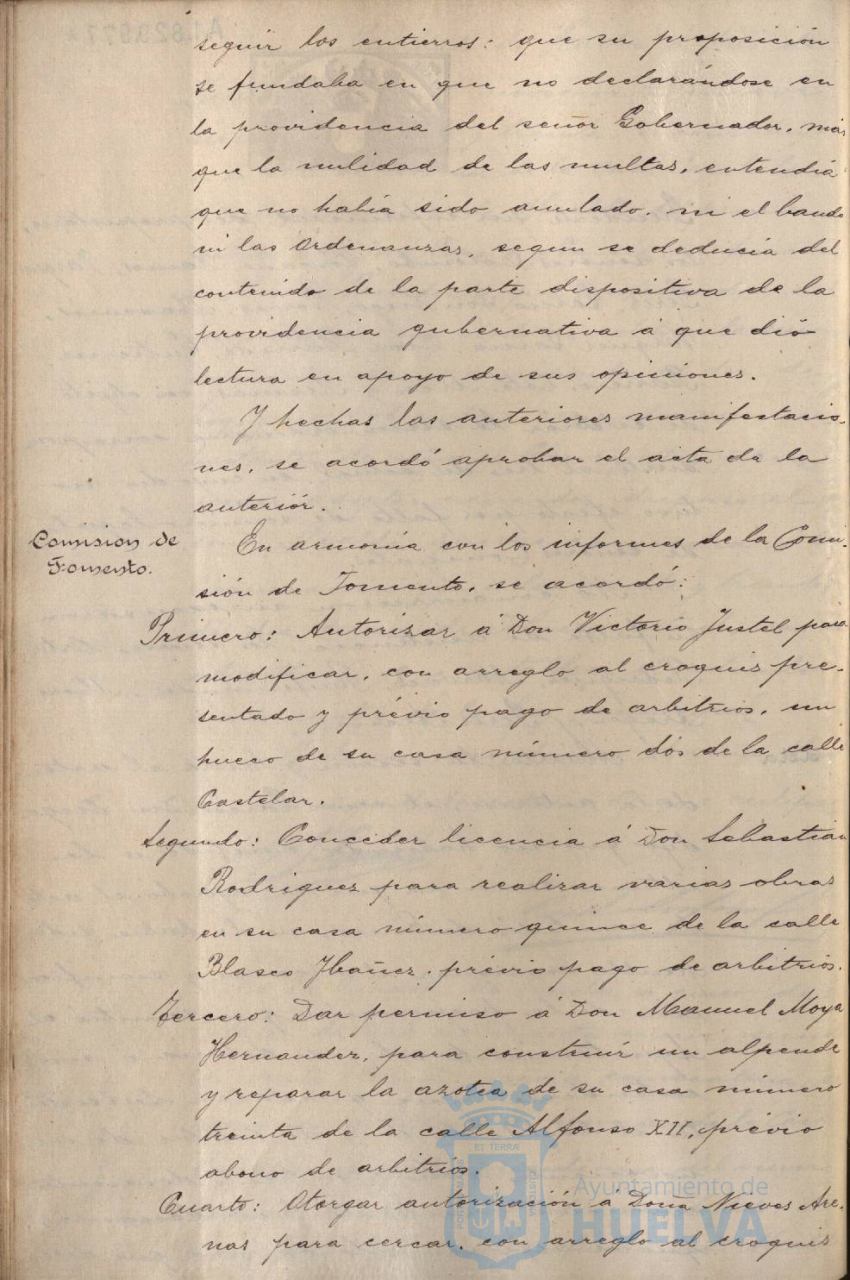 seguir los entierros: que su proposición
se fundaba en que no declarándose en
la providencia del señor Gobernador, más
que la nulidad de las multas, entendía
que no había sido anulado, ni el bando
ni las Ordenanzas, segun se deducía del
contenido de la parte dispositiva de la
providencia gubernativa á que dió
lectura en apoyo de sus opiniones.
Y hechas las anteriores manifestacio-
nes, se acordó aprobar el acta de la
anteriór.
Comision de
Fomento.
En armonía con los informes de la Comi-
sión de Fomento, se acordó:
Primero: Autorizar á Don Victorio Justel para
modificar, con arreglo al croquis pre-
sentado y prévio pago de arbitrios, un
hueco de su casa número dós de la calle
Castelar.
Segundo: Conceder licencia á Don Sebastian
Rodriguez para realizar varias obras
en su casa número quince de la calle
Blasco Ybañez, prévio pago de arbitrios.
Tercero: Dar permiso á Don Manuel Moya
Hernandez, para construír un alpende
y reparar la azotea de su casa número
treinta de la calle Alfonso XII, prévio
abono de arbitrios.
Cuarto: Otorgar autorización á Doña Nieves Are-
nas para cercar, con arreglo al croquis
Ayuntamiento de
HUELVA